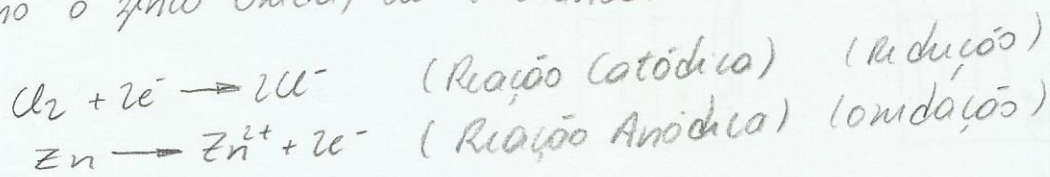 no o zinco
Cl₂ + 2e⁻ → 2Cl⁻ (Reação Catódica) (redução)
Zn → Zn²⁺ + 2e⁻ (Reação Anódica) (oxidação)